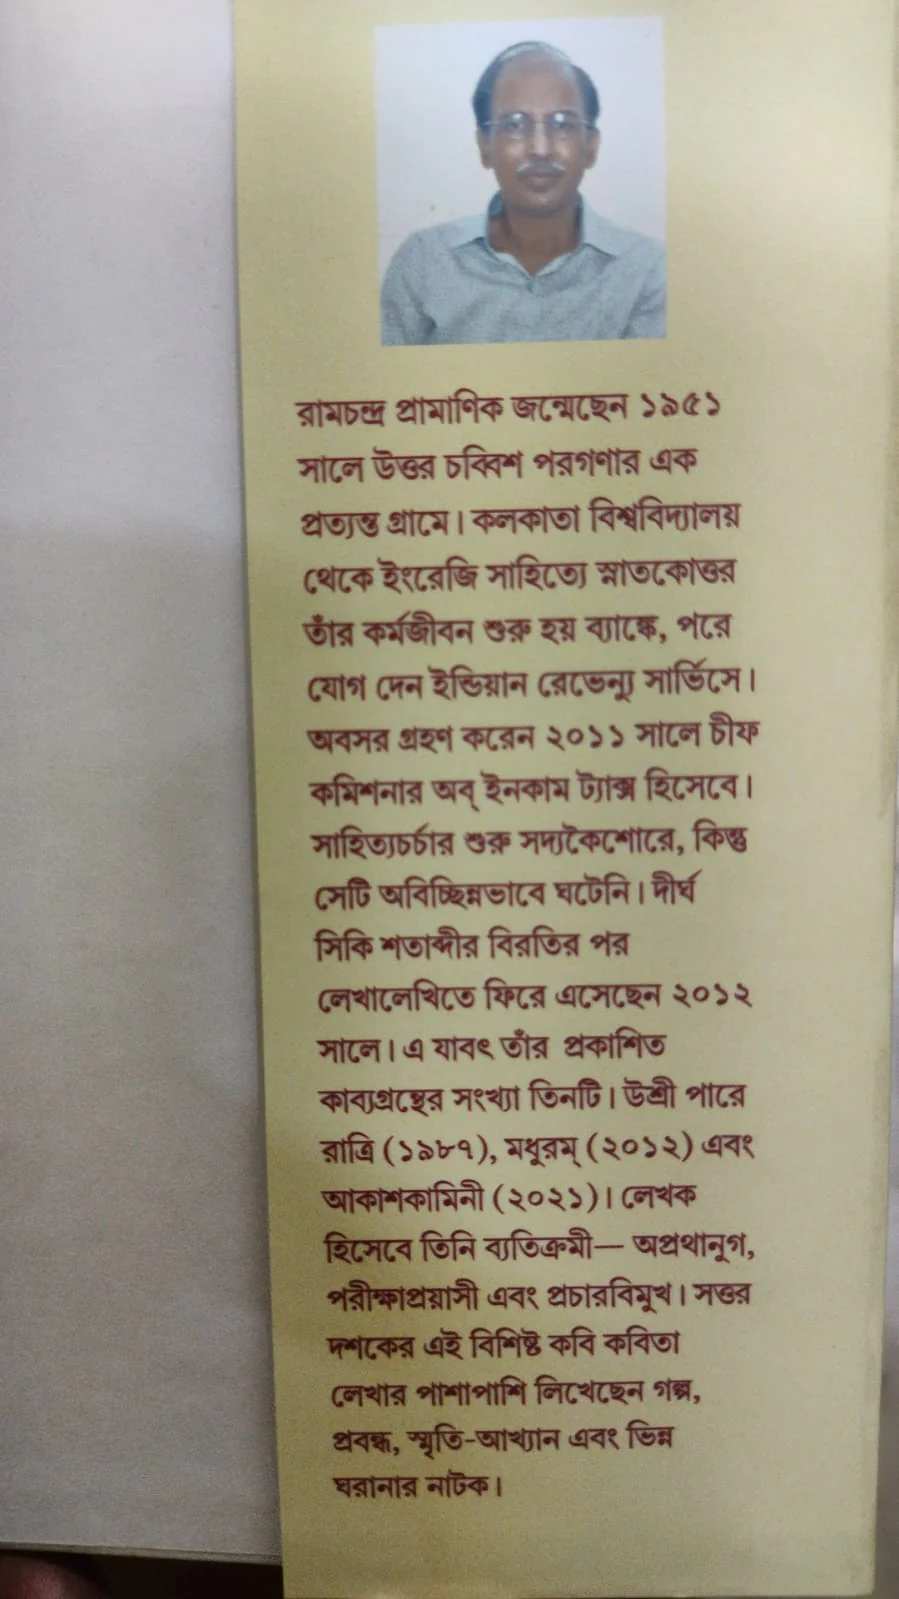 রামচন্দ্র প্রামাণিক জন্মেছেন ১৯৫১
সালে উত্তর চব্বিশ পরগণার এক
প্রত্যন্ত গ্রামে। কলকাতা বিশ্ববিদ্যালয়
থেকে ইংরেজি সাহিত্যে স্নাতকোত্তর
তাঁর কর্মজীবন শুরু হয় ব্যাঙ্কে, পরে
যোগ দেন ইন্ডিয়ান রেভেন্যু সার্ভিসে।
অবসর গ্রহণ করেন ২০১১ সালে চীফ
কমিশনার অব্ ইনকাম ট্যাক্স হিসেবে।
সাহিত্যচর্চার শুরু সদ্যকৈশোরে, কিন্তু
সেটি অবিচ্ছিন্নভাবে ঘটেনি। দীর্ঘ
সিকি শতাব্দীর বিরতির পর
লেখালেখিতে ফিরে এসেছেন ২০১২
সালে। এ যাবৎ তাঁর প্রকাশিত
কাব্যগ্রন্থের সংখ্যা তিনটি। উশ্রী পারে
রাত্রি (১৯৮৭), মধুরম্ (২০১২) এবং
আকাশকামিনী (২০২১)। লেখক
হিসেবে তিনি ব্যতিক্রমী— অপ্রথানুগ,
পরীক্ষাপ্রয়াসী এবং প্রচারবিমুখ। সত্তর
দশকের এই বিশিষ্ট কবি কবিতা
লেখার পাশাপাশি লিখেছেন গল্প,
প্রবন্ধ, স্মৃতি-আখ্যান এবং ভিন্ন
ঘরানার নাটক।